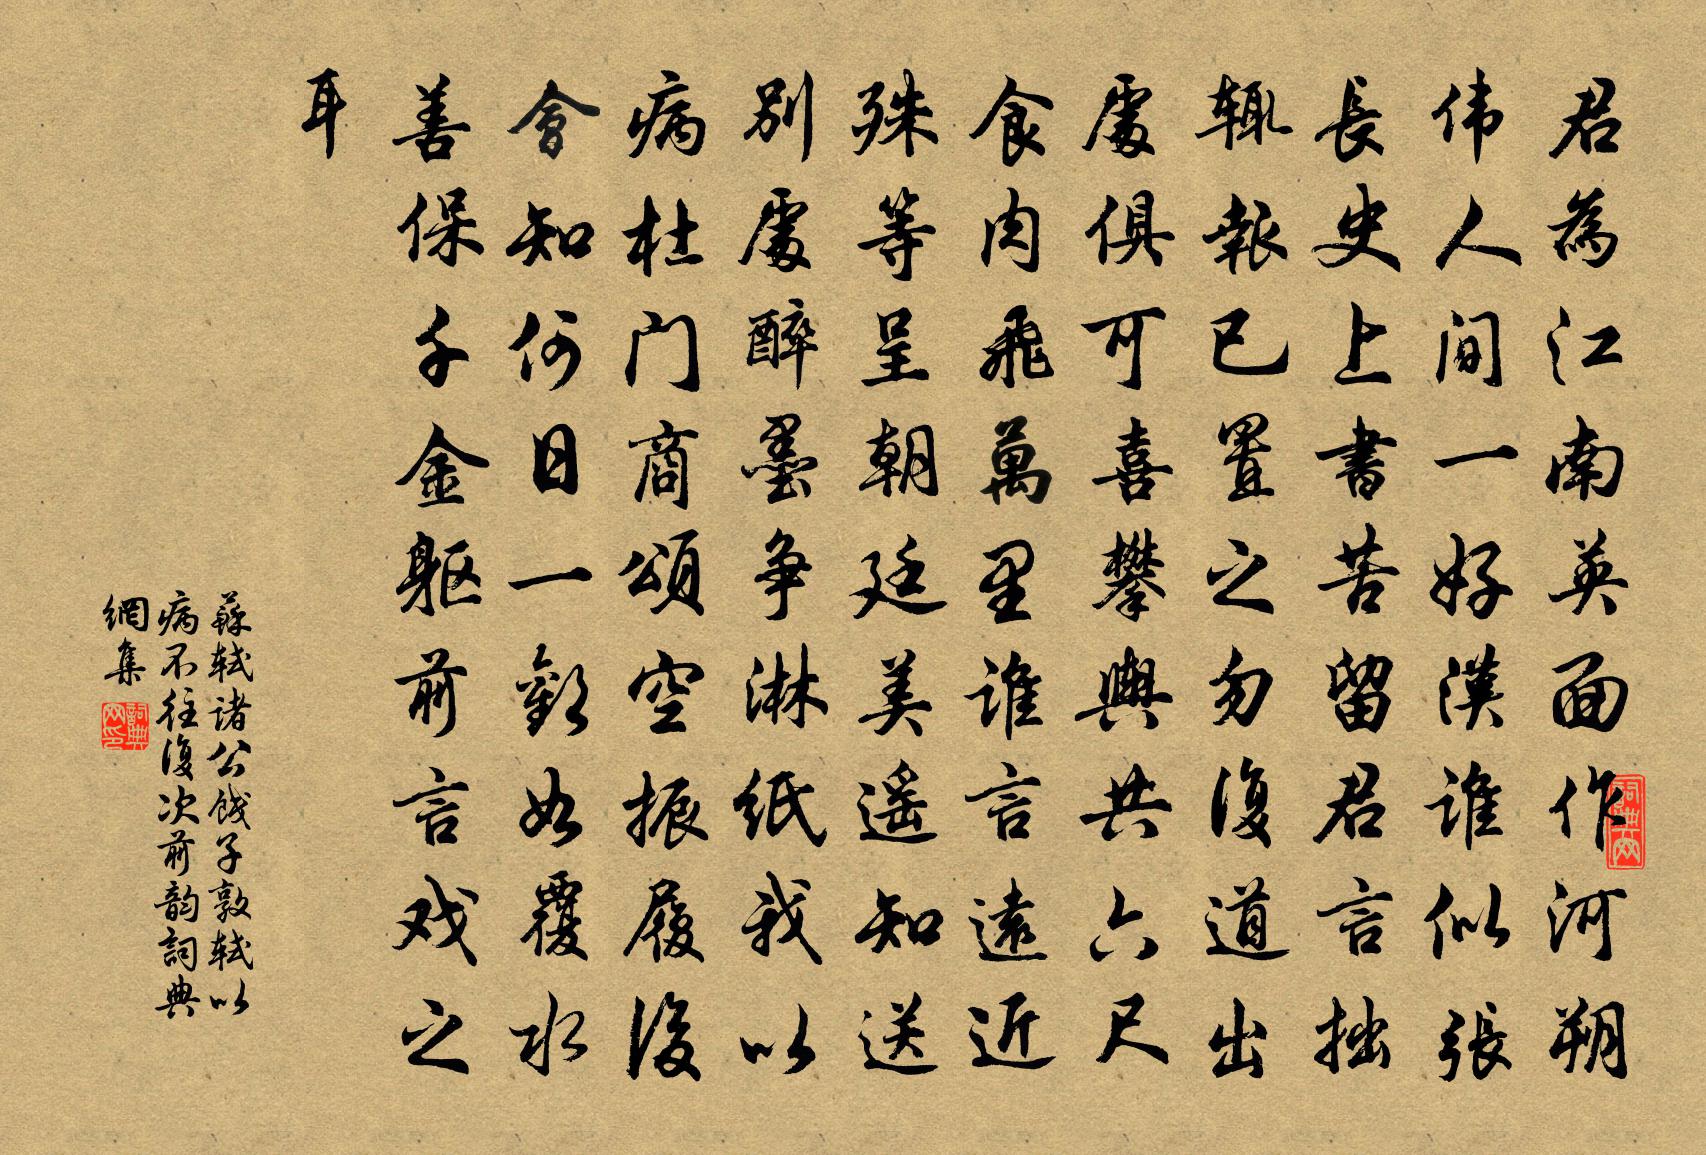 君為江南英面作河朔
伟人间一好漢谁似張
長史上書苦留君言拙
輒報已置之勿復道出
處俱可喜攀輿共六尺
食肉飛萬里谁言遠近
殊等呈朝廷美遥知送
别處醉墨争淋纸我以
病杜门商頌空振履後
會知何日一歡如覆水
善保千金躯前言戏之
耳
蘇轼诸公饯子敦轼以
病不往復次前韵詞典
網集
詞典网印
词典网